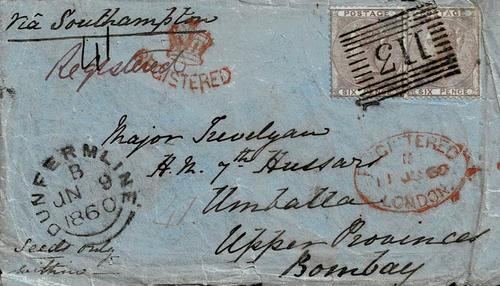 via Southampton
Registered
REGISTERED
POSTAGE
SIX PENCE
POSTAGE
SIX PENCE
113
Major Trevelyan
H.M. 7th Hussars
Umballa
Upper Provinces
Bombay
DUNFERMLINE
B
JN 9
1860
REGISTERED
11 JU 60
LONDON
Seeds only
within